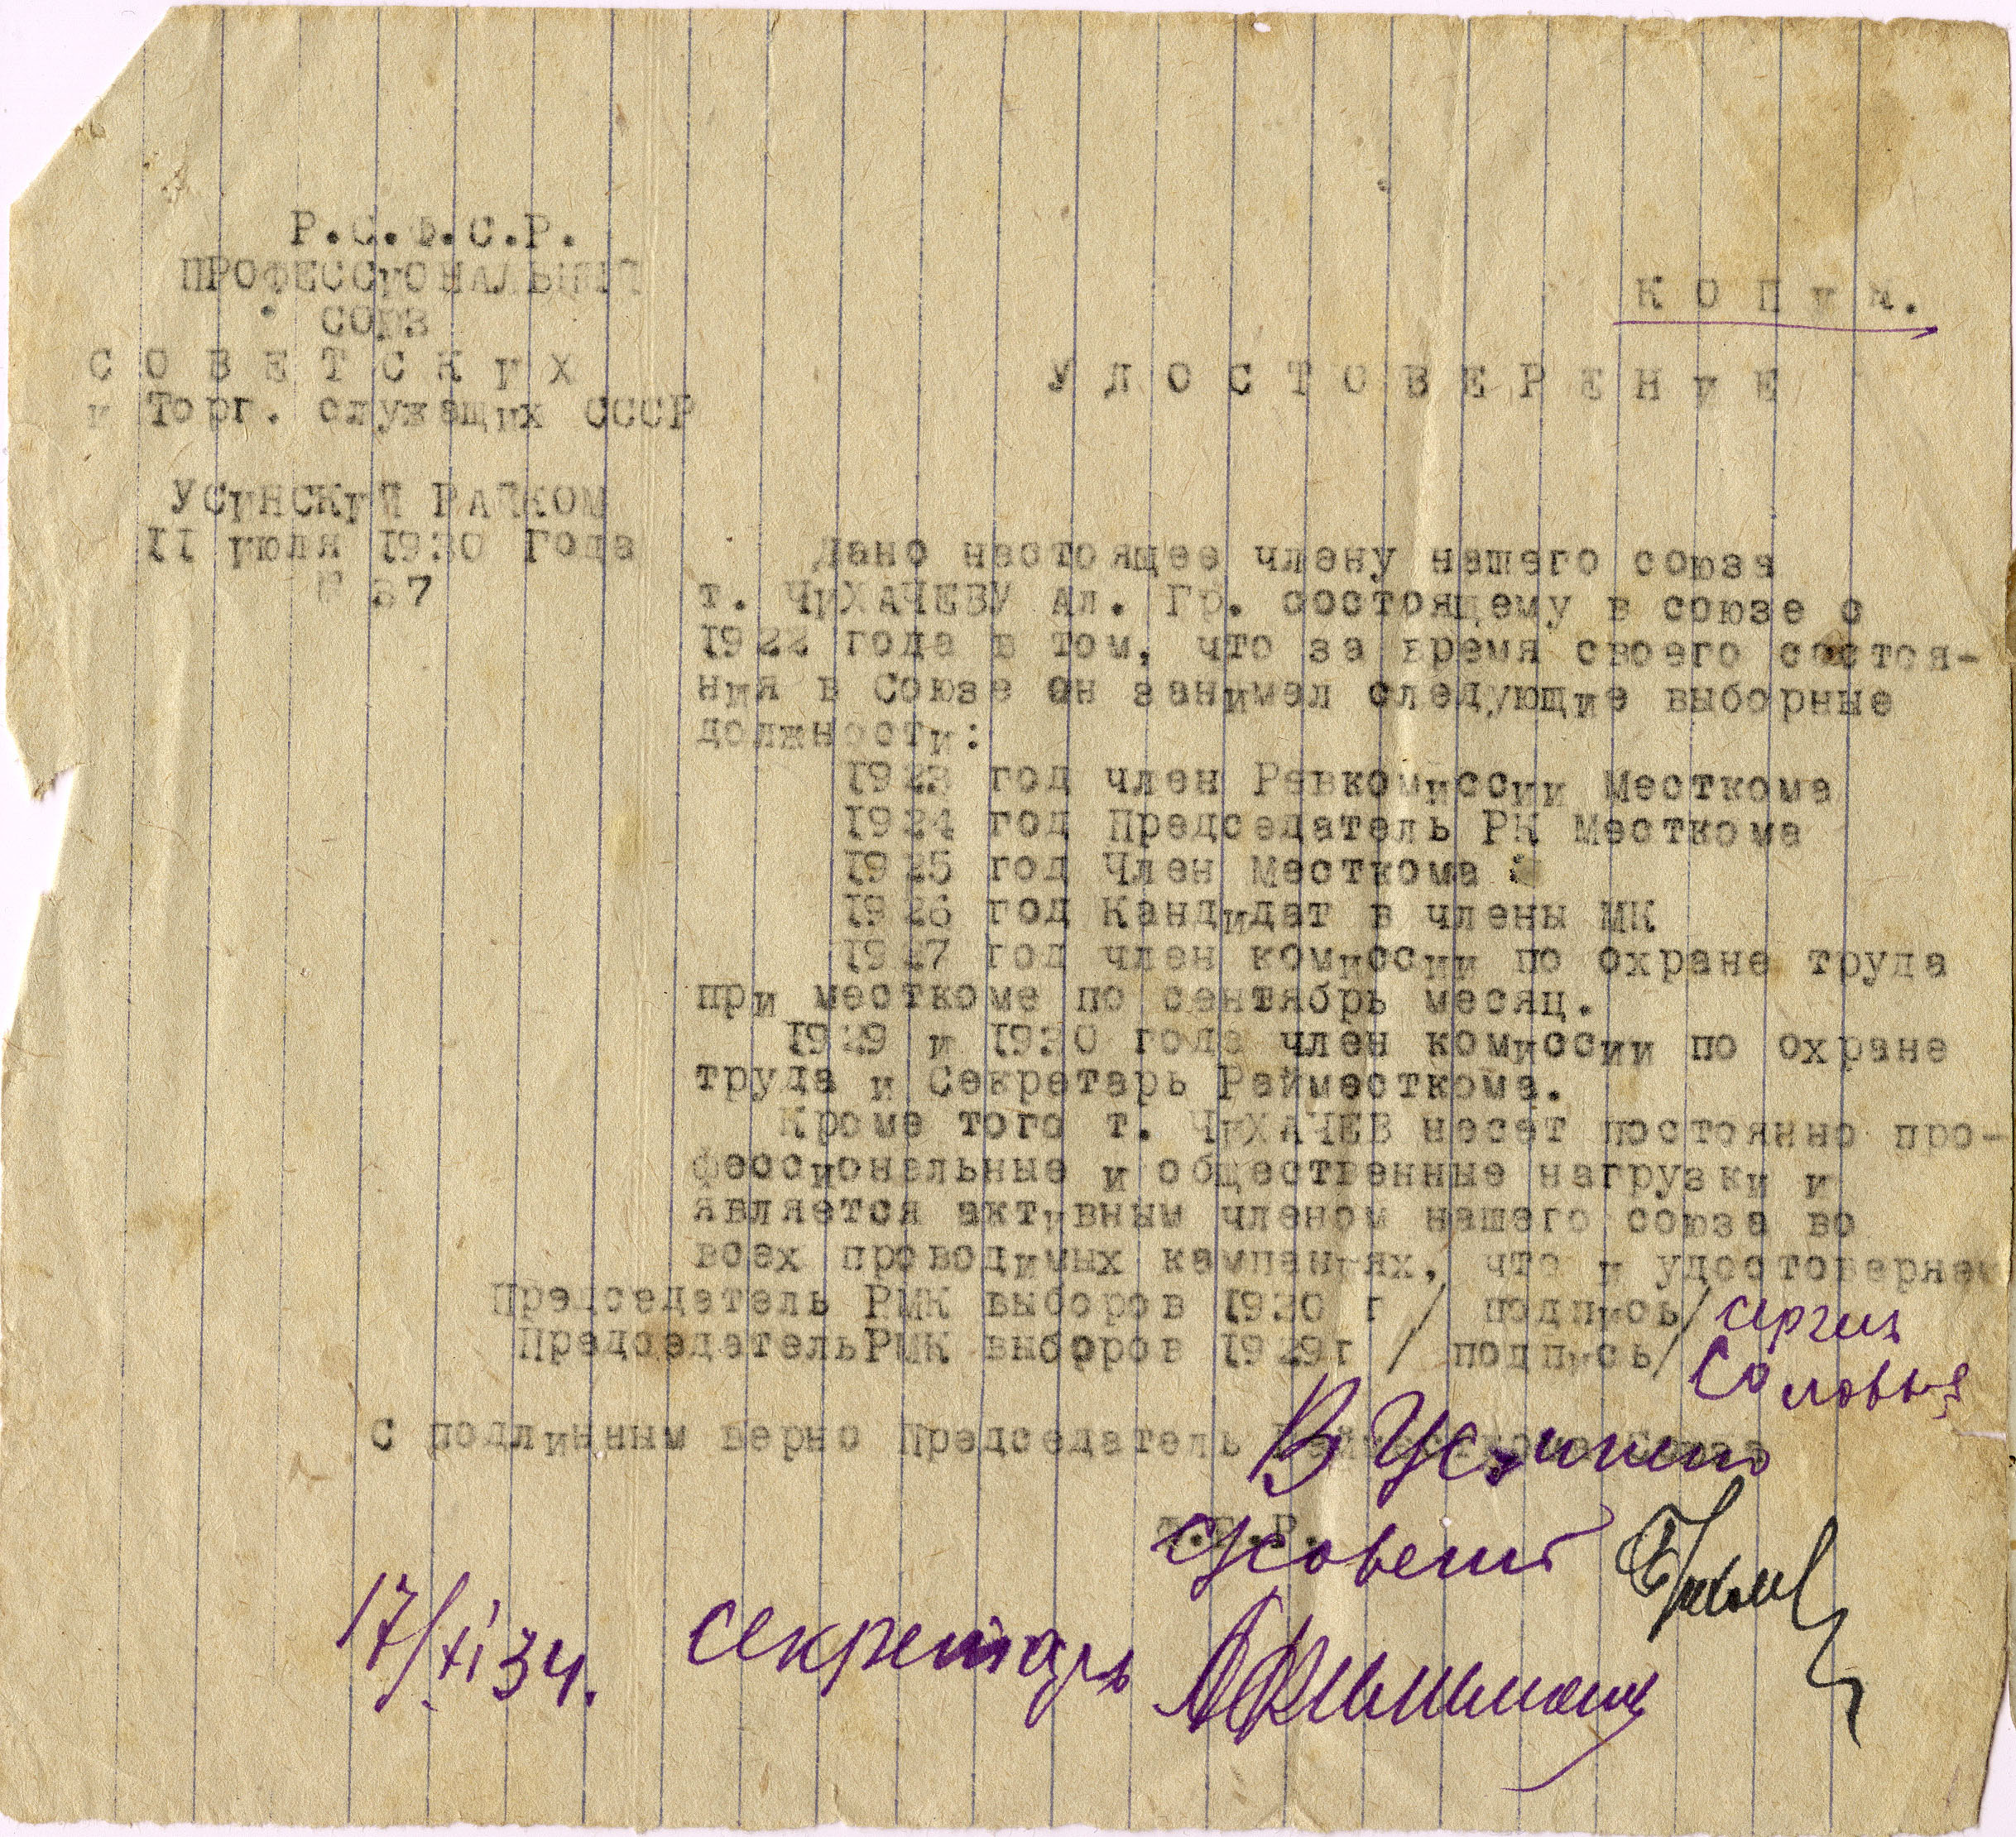 Р.С.Ф.С.Р.
ПРОФЕССИОНАЛЬНЫЙ
СОЮЗ
С О В Е Т С К И Х
и Торг. служащих СССР
УСИНСКИЙ РАЙКОМ
II июля 1930 Года
№ 37
К О П И Я.
У Д О С Т О В Е Р Е Н И Е
Дано настоящее члену нашего союза
т. ЧИХАЧЕВУ Ал. Гр. состоящему в союзе с
1922 года в том, что за время своего состоя-
ния в Союзе он занимал следующие выборные
должности:
1923 год член Ревкомиссии Месткома
1924 год Председатель РК Месткома
1925 год Член Месткома
1926 год Кандидат в члены МК
1927 год член комиссии по охране труда
при месткоме по сентябрь месяц.
1929 и 1930 года член комиссии по охране
труда и Секретарь Райместкома.
Кроме того т. ЧИХАЧЕВ несет постоянно про-
фессиональные и общественные нагрузки и
является активным членом нашего союза во
всех проводимых кампаниях, что и удостоверяе
Председатель РМК выборов 1930 г / подпись/
ПредседательРМК выборов 1929г / подпись/
С подлинным верно Председатель
Т.Н.Р.
17/XI 34. секретарь